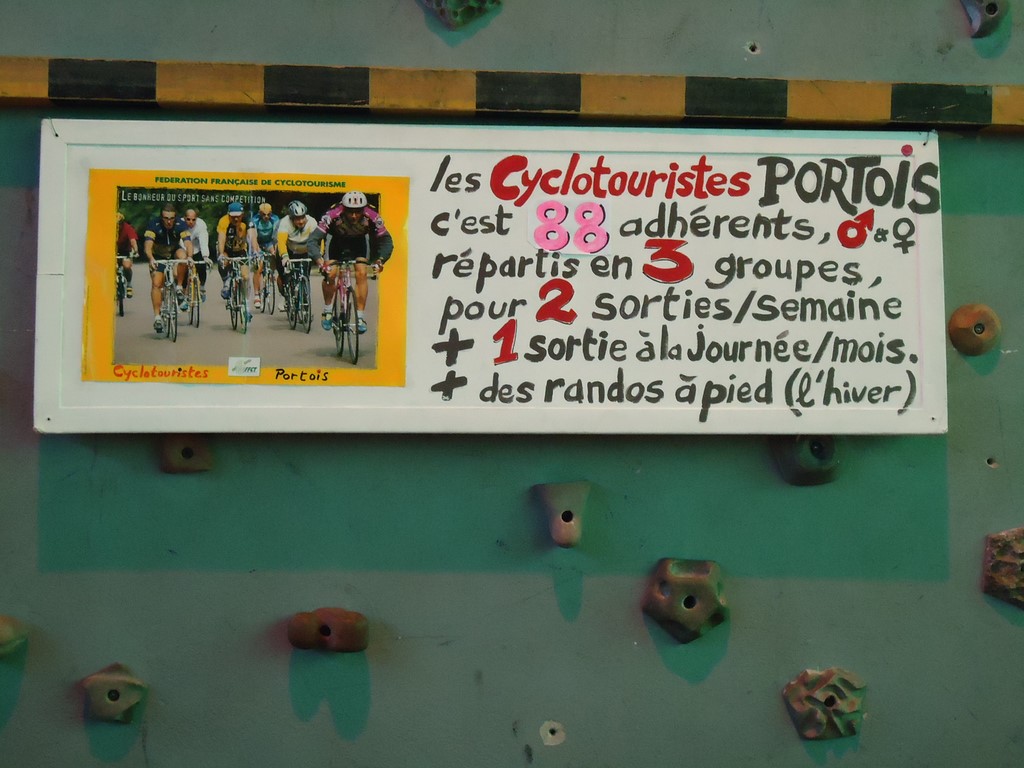 FEDERATION FRANÇAISE DE CYCLOTOURISME
LE BONHEUR DU SPORT SANS COMPETITION
Cyclotouristes Portois
les Cyclotouristes PORTOIS
c'est 88 adhérents, ♂ & ♀
répartis en 3 groupes,
pour 2 sorties/semaine
+ 1 sortie à la Journée/mois.
+ des randos à pied (l'hiver)